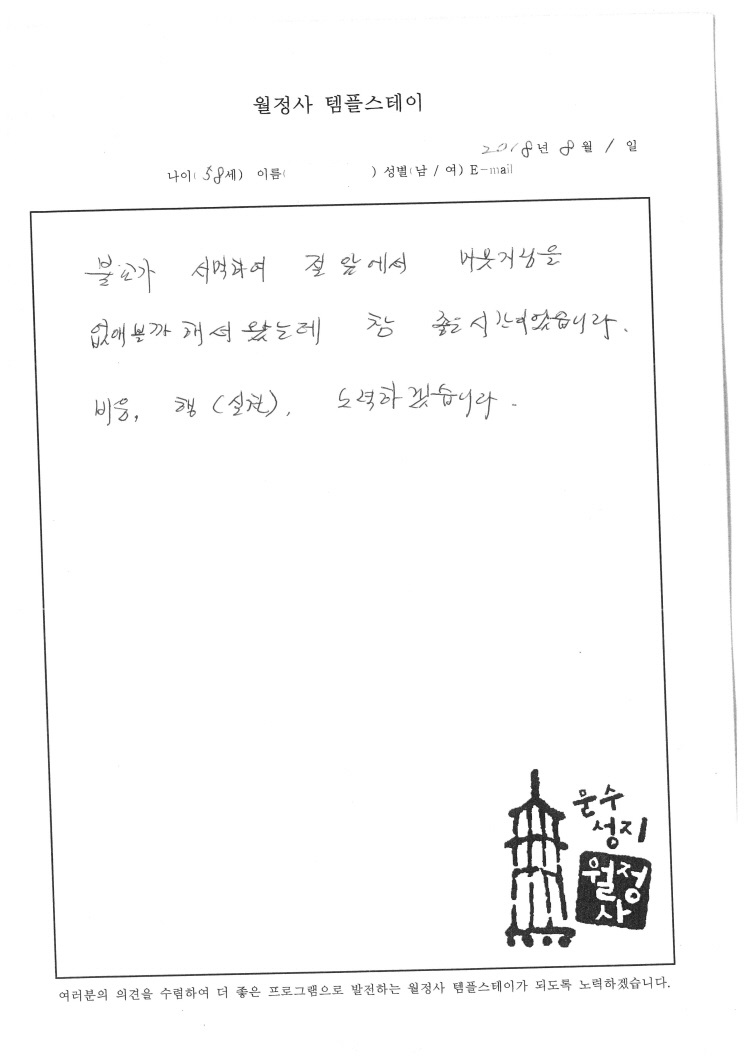 월정사 템플스테이
2018년 8월 1일
나이(58세) 이름( ) 성별(남 / 여) E-mail
불교가 서먹하여 절 앞에서 머뭇거림을
없애볼까 해서 왔는데 참 좋은 시간이었습니다.
비움, 행(실천), 노력하겠습니다.
문수
성지
월정
사
여러분의 의견을 수렴하여 더 좋은 프로그램으로 발전하는 월정사 템플스테이가 되도록 노력하겠습니다.